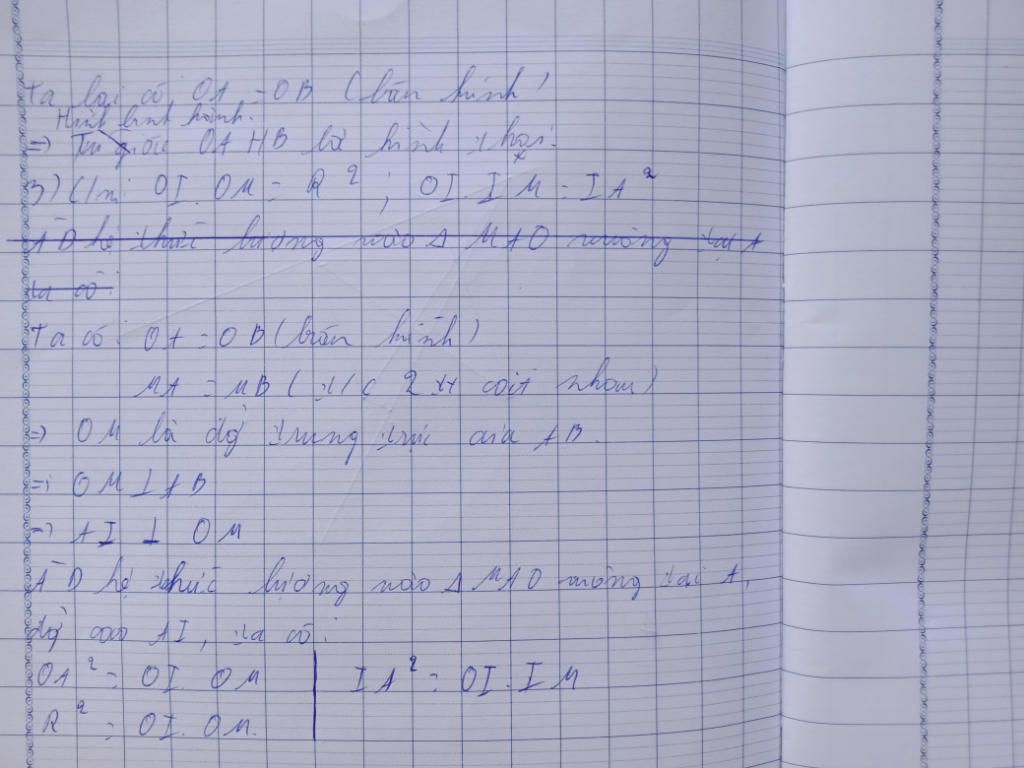 Ta lại có OA = OB (bán kính)
Hình bình hành.
=> Tứ giác OAHB là hình thoi.
3) C/m: OI.OM = R² ; OI.IM = IA²
AD hệ thức lượng vào Δ MAO vuông tại A
ta có:
Ta có: OA = OB (bán kính)
MA = MB (t/c 2 tt cắt nhau)
=> OM là đg trung trực của AB.
=> OM ⊥ AB
=> AI ⊥ OM
AD hệ thức lượng vào Δ MAO vuông tại A,
đg cao AI, ta có:
OA² = OI.OM | IA² = OI.IM
R² = OI.OM.